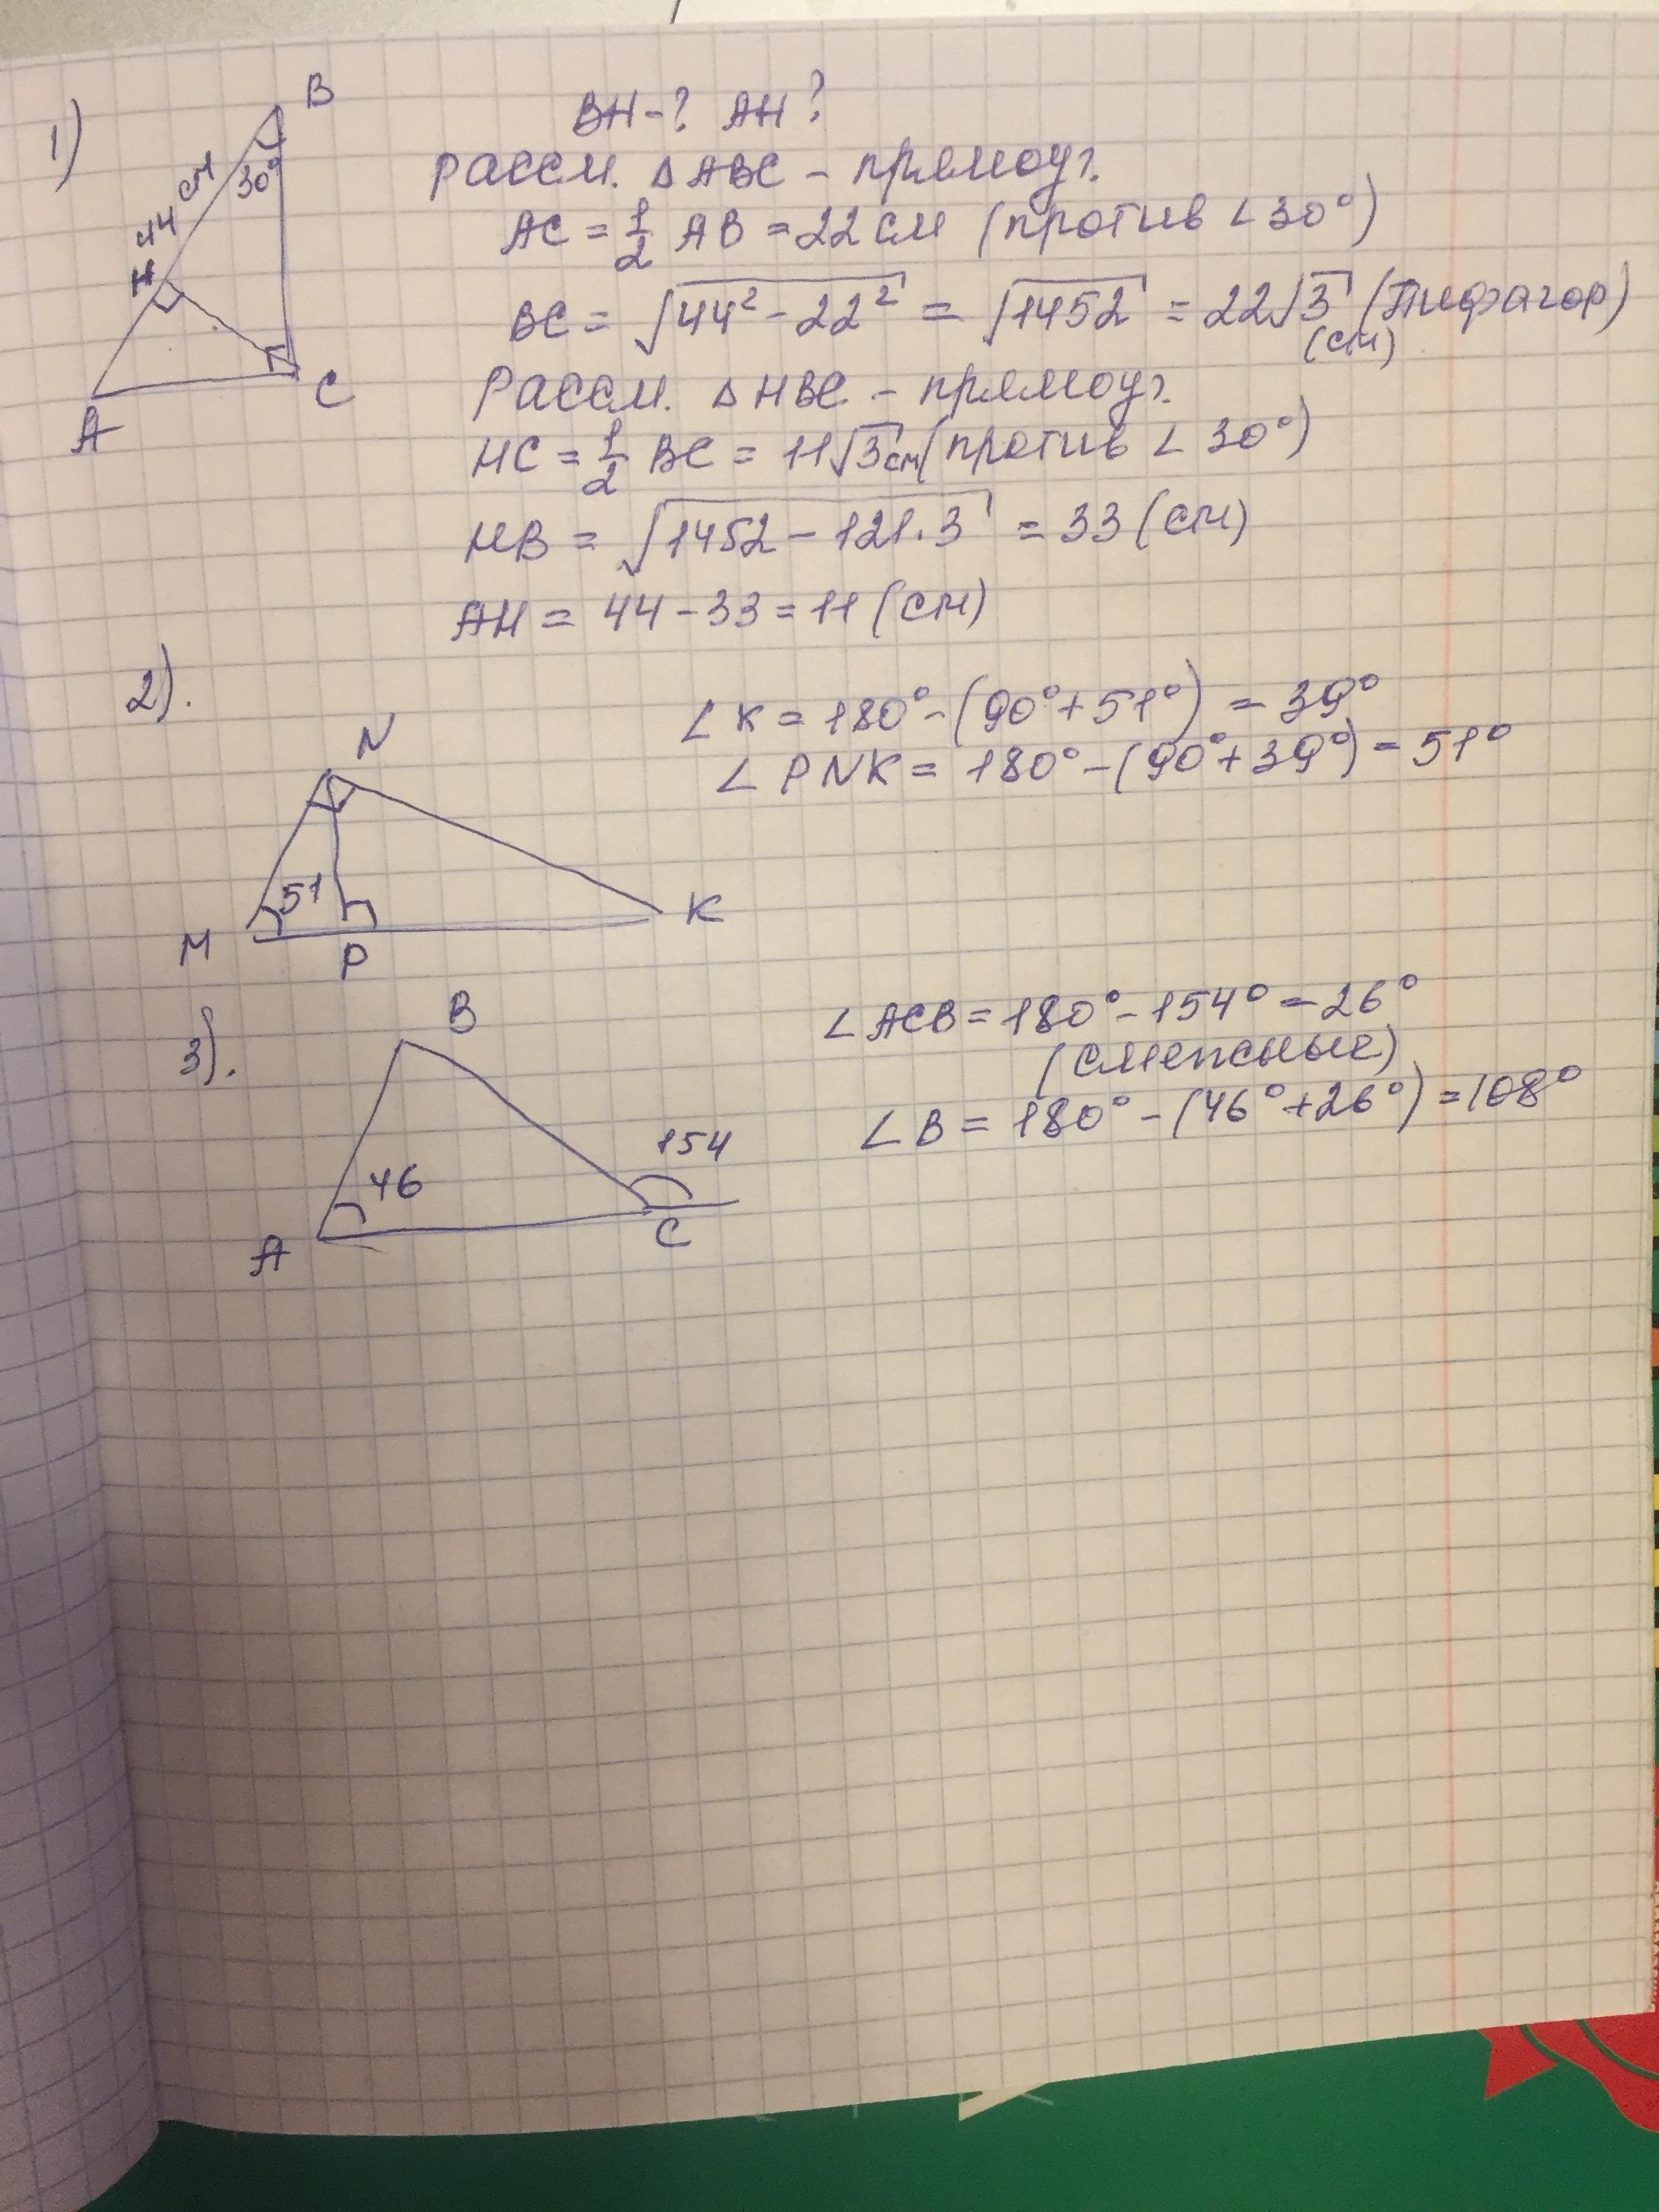 1)
B
30°
44 см
H
A
C
BH-? AH?
Рассм. △ABC - прямоуг.
AC = 1/2 AB = 22 см (против ∠30°)
BC = √(44² - 22²) = √1452 = 22√3 (Пифагор)
(см)
Рассм. △HBC - прямоуг.
HC = 1/2 BC = 11√3 см (против ∠30°)
HB = √(1452 - 121·3) = 33 (см)
AH = 44 - 33 = 11 (см)
2).
N
51
M
P
K
∠K = 180° - (90° + 51°) = 39°
∠PNK = 180° - (90° + 39°) = 51°
3).
B
46
154
A
C
∠ACB = 180° - 154° = 26°
(смежные)
∠B = 180° - (46° + 26°) = 108°